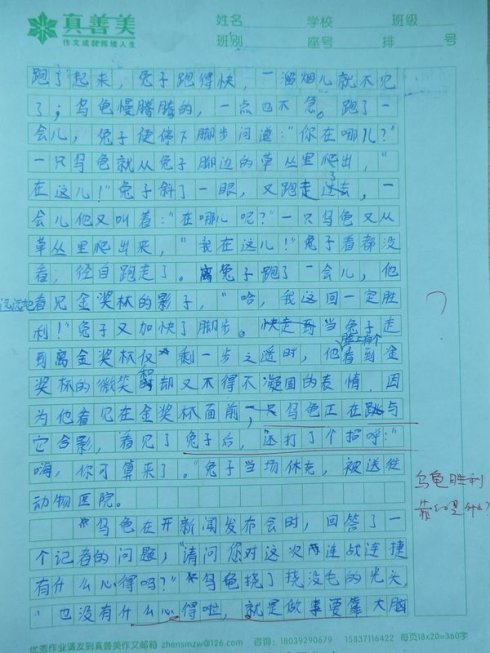 真善美
作文成就辉煌人生
姓名 学校 班级
班别 座号 排 号
跑了起来，兔子跑得快，一溜烟儿就不见
了；乌龟慢腾腾的，一点也不急。跑了一
会儿，兔子便停下脚步问道："你在哪儿？"
一只乌龟就从兔子脚边的草丛里爬出，"
在这儿！"兔子斜了一眼，又跑走了，一
会儿他又叫着："在哪儿呢？"一只乌龟又从
草丛里爬出来，"我在这儿！"兔子看都没
看，径自跑走了。兔子跑了一会儿，他
远远地看见金奖杯的影子，"哈，我这回一定胜
利！"兔子又加快了脚步。当兔子走
到离金奖杯仅剩一步之遥时，他脸上有个看到金
奖杯的微笑却又不得不凝固的表情，因
为他看见在金奖杯面前，一只乌龟正在与
它合影，看见了兔子后，还打了个招呼："
嗨，你可算来了。"兔子当场休克，被送往
动物医院。
乌龟在开新闻发布会时，回答了一
个记者的问题，"请问你对这次连战连捷
有什么心得吗？"乌龟挠了挠没毛的光头
"也没有什么心得啦，就是做事要靠大脑
？
乌龟胜利
靠的是什么？
优秀作业请发到真善美作文邮箱 zhensmzw@126.com 咨询：18039290679 15837116422 每页18x20=360字